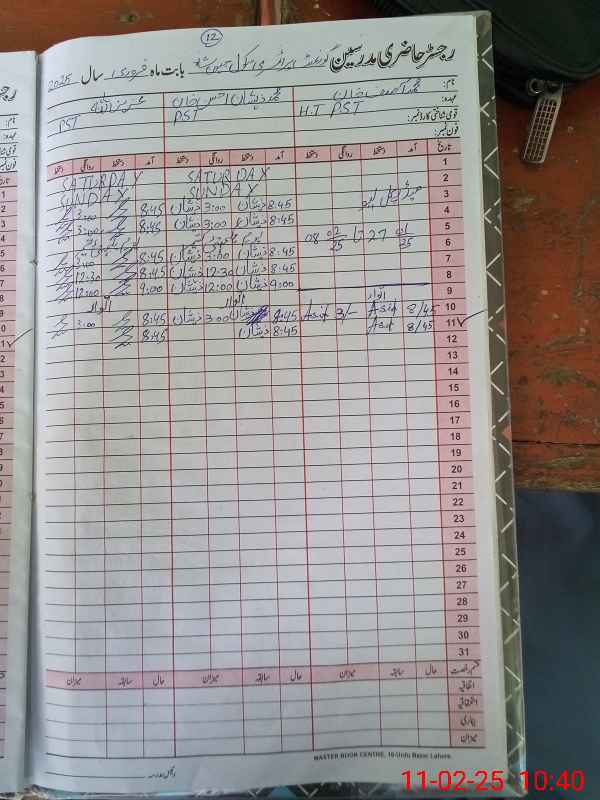 12
رجسٹر حاضری مدرسین گورنمنٹ پرائمری سکول بابت ماہ فروری سال 2025
نام: محمد آصف خان محمد ذیشان احسن خان عزیز اللہ
عہدہ: H.T PST PST PST
قومی شناختی کارڈ نمبر:
فون نمبر:
تاریخ آمد دستخط روانگی دستخط آمد دستخط روانگی دستخط آمد دستخط روانگی دستخط
1 SATURDAY SATURDAY
2 SUNDAY SUNDAY
3 8:45 ذیشان 3:00 ذیشان 8:45 3:00
4 8:45 ذیشان 3:00 ذیشان 8:45 3:00
5
6 27 01/25 تا 08 02/25 8:45 ذیشان 3:00 ذیشان 8:45
7 8:45 ذیشان 12:30 ذیشان 8:45 12:30
8 9:00 ذیشان 12:00 ذیشان 9:00 12:00
9 اتوار اتوار اتوار
10 8/45 Asif 3/- Asif 8:45 ذیشان 3:00 ذیشان 8:45 3:00
11 8/45 Asif 8:45 ذیشان 8:45
12
13
14
15
16
17
18
19
20
21
22
23
24
25
26
27
28
29
30
31
قسم رخصت حال سابقہ میزان حال سابقہ میزان حال سابقہ میزان
اتفاقیہ
استحقاقیہ
بیماری
میزان
MASTER BOOK CENTRE, 16-Urdu Bazar Lahore.
11-02-25 10:40